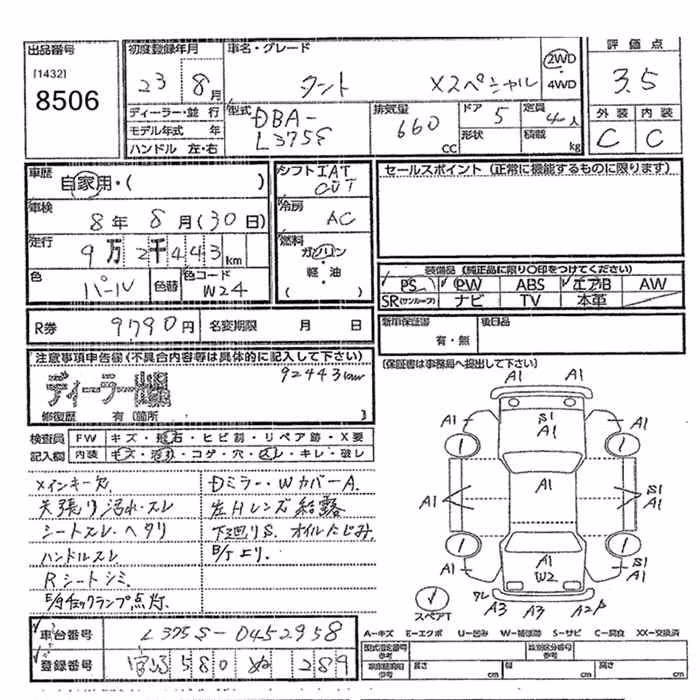 出品番号
[1432]
8506
初度登録年月
23 8月
ディーラー・並行
モデル年式 年
ハンドル 左・右
車名・グレード
タント Xスペシャル
2WD
・
4WD
型式
DBA-
L375S
排気量
660
cc
ドア 5
形状
定員 4人
積載 kg
評価点
3.5
外装 内装
C C
車歴
自家用・( )
車検
8年 8月(30日)
走行
9万2千443km
色
パール
色替
色コード
W24
シフト IAT
CVT
冷房
AC
燃料
ガソリン
・
軽・油
( )
セールスポイント (正常に機能するものに限ります)
装備品 (純正品に限り〇印をつけてください)
PS PW ABS エアB AW
SR(サンルーフ) ナビ TV 本革
R券 9,790円 名変期限 月 日
新車保証書
有・無
後日品
(保証書は事務局へ提出して下さい)
注意事項申告欄 (不具合内容等は具体的に記入して下さい)
92443km
ディーラー出品
修復歴 有 (箇所 )
検査員 FW キズ・飛石・ヒビ割・リペア跡・X要
記入欄 内装 キズ・汚れ・コゲ・穴・スレ・キレ・破レ
メインキー欠
天張り汚れ・スレ
シートスレ・ヘタリ
ハンドルスレ
Rシートシミ
E/gチェックランプ点灯.
Dミラー・WカバーA.
左Hレンズ結露
下廻りS. オイルにじみ
A1
A1
A1
S1
A1
A1
A1
A1
S1
A1
A1
A1
W2
S1
A1
A3 A3 A2P
スペアT
車台番号 L375S-0452958
登録番号 580 ぬ 289
A-キズ E-エクボ U-凹み W-補修跡 S-サビ C-腐食 XX-交換済
型式指定番号
参考
類別区分番号
参考
長さ cm
幅 cm
高さ cm